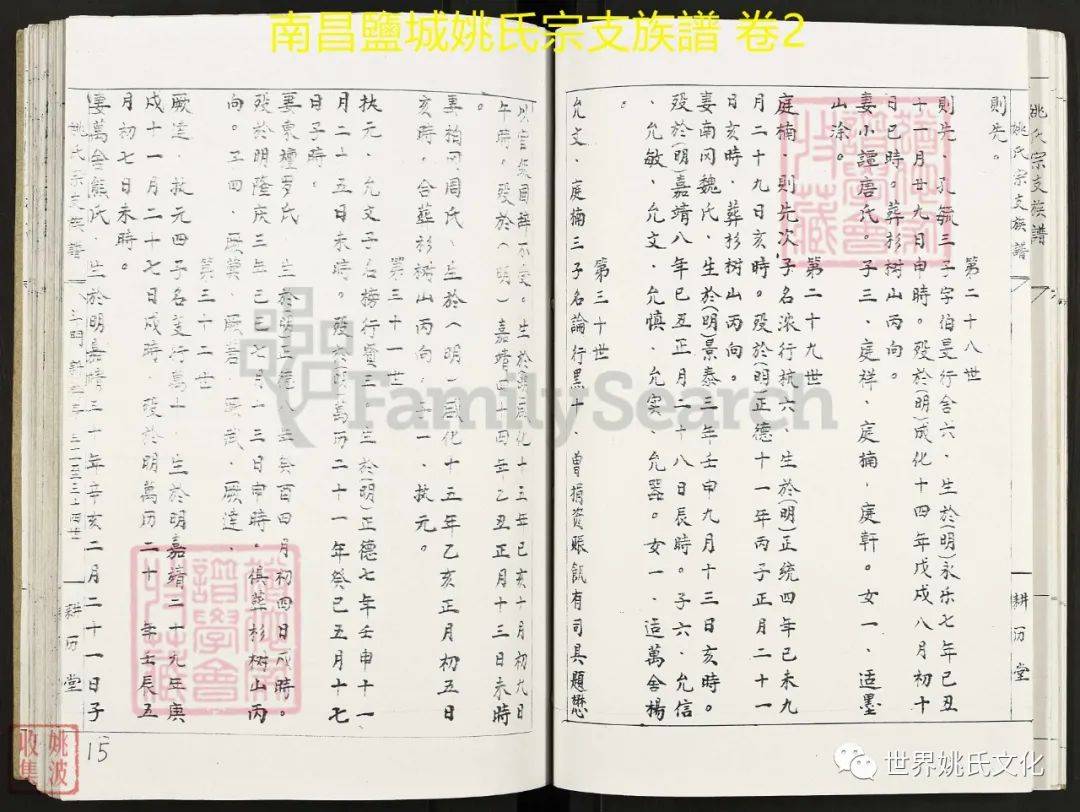 南昌鹽城姚氏宗支族譜 卷2
姚氏宗支族譜
姚氏宗支族譜
耕历堂
則先。
第二十八世
則先、孔毓三子字伯旻行舍六、生於(明)永乐七年己丑
十一月廿九日申時。殁於(明)成化十四年戊戌八月初十
日巳時。葬杉樹山丙向。
妻小譚唐氏。子三、庭祥、庭楠、庭軒。女一、适墨
山涂。
第二十九世
庭楠、則先次子名浓行抗六、生於(明)正统四年己未九
月二十九日亥時。殁於(明)正德十一年丙子正月二十一
日亥時、葬杉树山丙向。
妻南冈魏氏、生於(明)景泰三年壬申九月十三日亥時。
殁於(明)嘉靖八年己丑正月二十八日辰時。子六、允信
、允敏、允文、允慎、允实、允器。女一、适萬舍楊
。
第三十世
允文、庭楠三子名論行黑十、曾捐资赈飢有司具題懋
以官坚固辞不受。生於成化十三年己亥十月初九日
午時。殁於(明)嘉靖四十四年乙丑正月十三日未時
。
妻柏冈周氏、生於(明)成化十五年乙亥正月初五日
亥時。合葬杉树山丙向。子一、扶元。
第三十一世
扶元、允文子名梅行寳三、生於(明)正德七年壬申十一
月二十五日未時。殁於(明)萬历二十一年癸巳五月十七
日子時。
妻東壇罗氏、生於(明)正德八年癸酉四月初四日戌時。
殁於明隆庆三年己巳七月十三日申時。俱葬杉树山丙
向。子四、厥黃、厥碧、厥武、厥達、
第三十二世
厥達、扶元四子名菱行萬十一、生於明嘉靖二十九年庚
戌十一月二十七日戌時、殁於明萬历二十年壬辰五
月初七日未時。
妻萬舍熊氏、生於明嘉靖三十年辛亥二月二十一日子
姚氏宗支族譜
耕历堂
15
姚波
收集
世界姚氏文化
FamilySearch